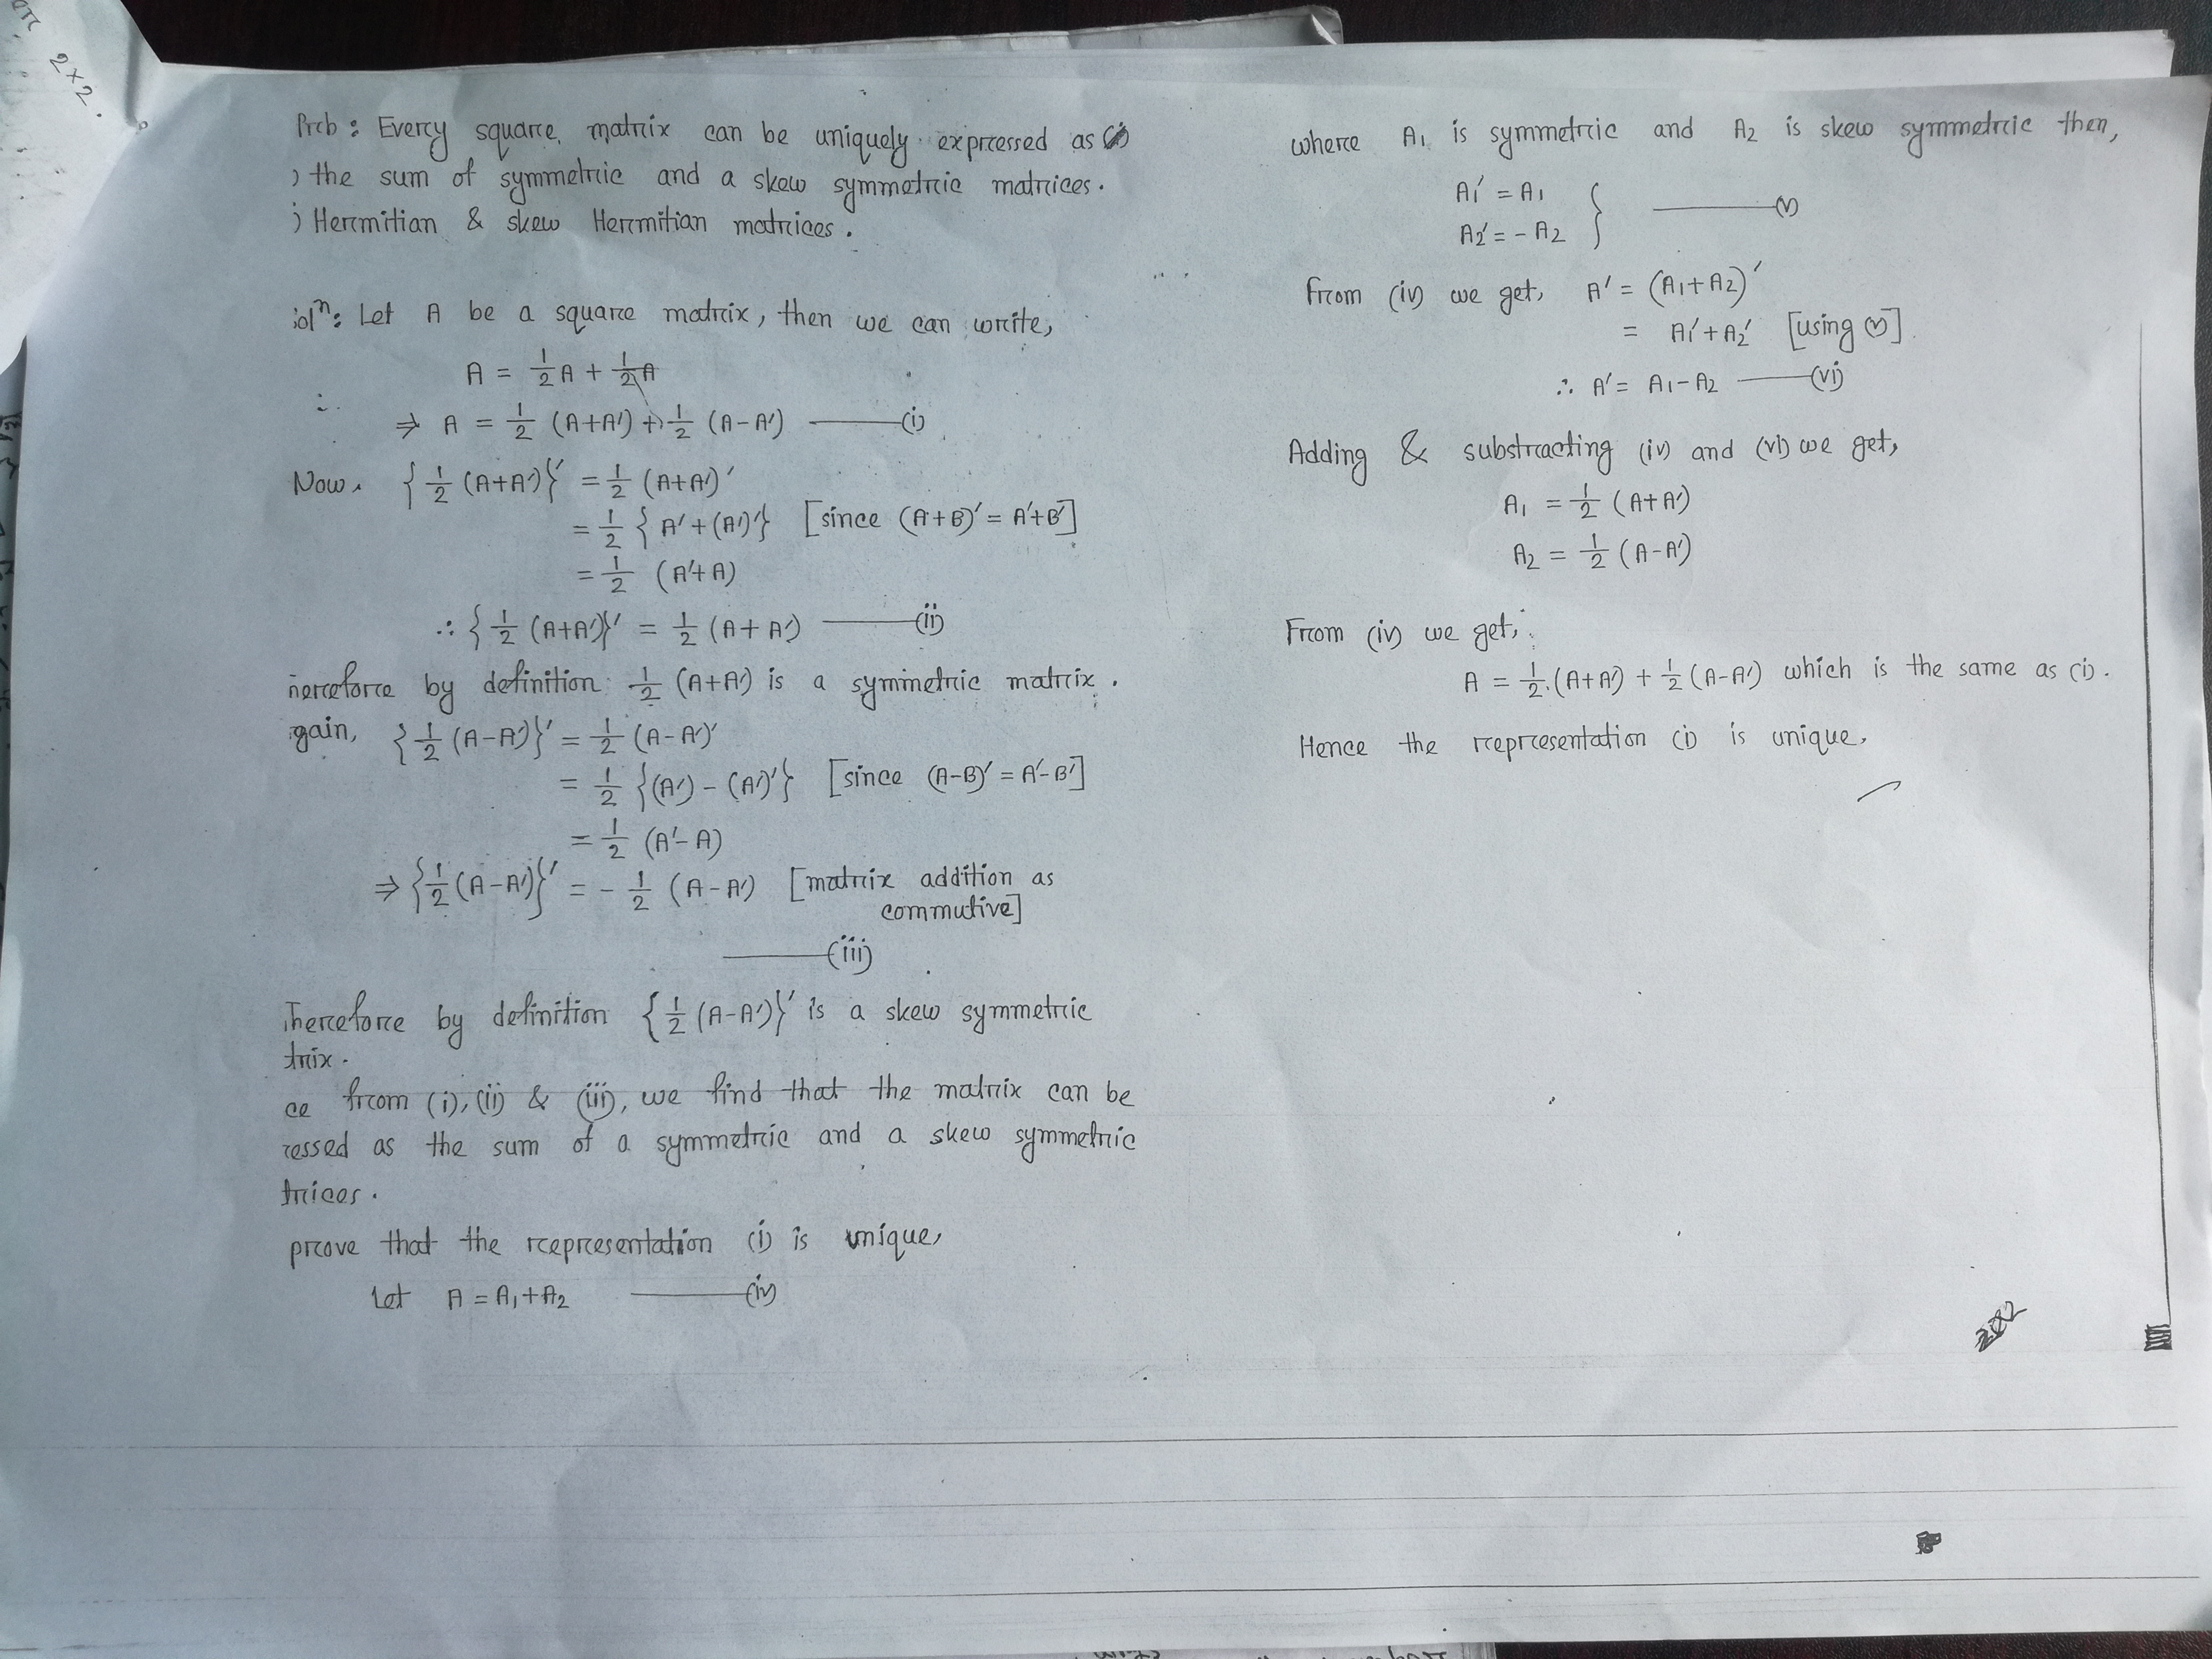 2×2.
Prob : Every square matrix can be uniquely expressed as
) the sum of symmetric and a skew symmetric matrices.
) Hermitian & skew Hermitian matrices.
olⁿ: Let A be a square matrix, then we can write,
A = 1/2 A + 1/2 A
⇒ A = 1/2 (A+A′) + 1/2 (A-A′) ——— (i)
Now, {1/2 (A+A′)}′ = 1/2 (A+A′)′
= 1/2 {A′+(A′)′} [since (A+B)′ = A′+B′]
= 1/2 (A′+A)
∴ {1/2 (A+A′)}′ = 1/2 (A+A′) ——— (ii)
herefore by definition 1/2 (A+A′) is a symmetric matrix.
gain, {1/2 (A-A′)}′ = 1/2 (A-A′)′
= 1/2 {(A′) - (A′)′} [since (A-B)′ = A′-B′]
= 1/2 (A′-A)
⇒ {1/2 (A-A′)}′ = - 1/2 (A-A′) [matrix addition as
commutive]
——— (iii)
Therefore by definition {1/2 (A-A′)}′ is a skew symmetric
trix.
ce from (i), (ii) & (iii), we find that the matrix can be
ressed as the sum of a symmetric and a skew symmetric
trices.
prove that the representation (i) is unique,
Let A = A₁+A₂ ——— (iv)
where A₁ is symmetric and A₂ is skew symmetric then,
A₁′ = A₁
A₂′ = - A₂ } ——— (v)
From (iv) we get, A′ = (A₁+A₂)′
= A₁′+A₂′ [using (v)]
∴ A′ = A₁-A₂ ——— (vi)
Adding & substracting (iv) and (vi) we get,
A₁ = 1/2 (A+A′)
A₂ = 1/2 (A-A′)
From (iv) we get,
A = 1/2 (A+A′) + 1/2 (A-A′) which is the same as (i).
Hence the representation (i) is unique.